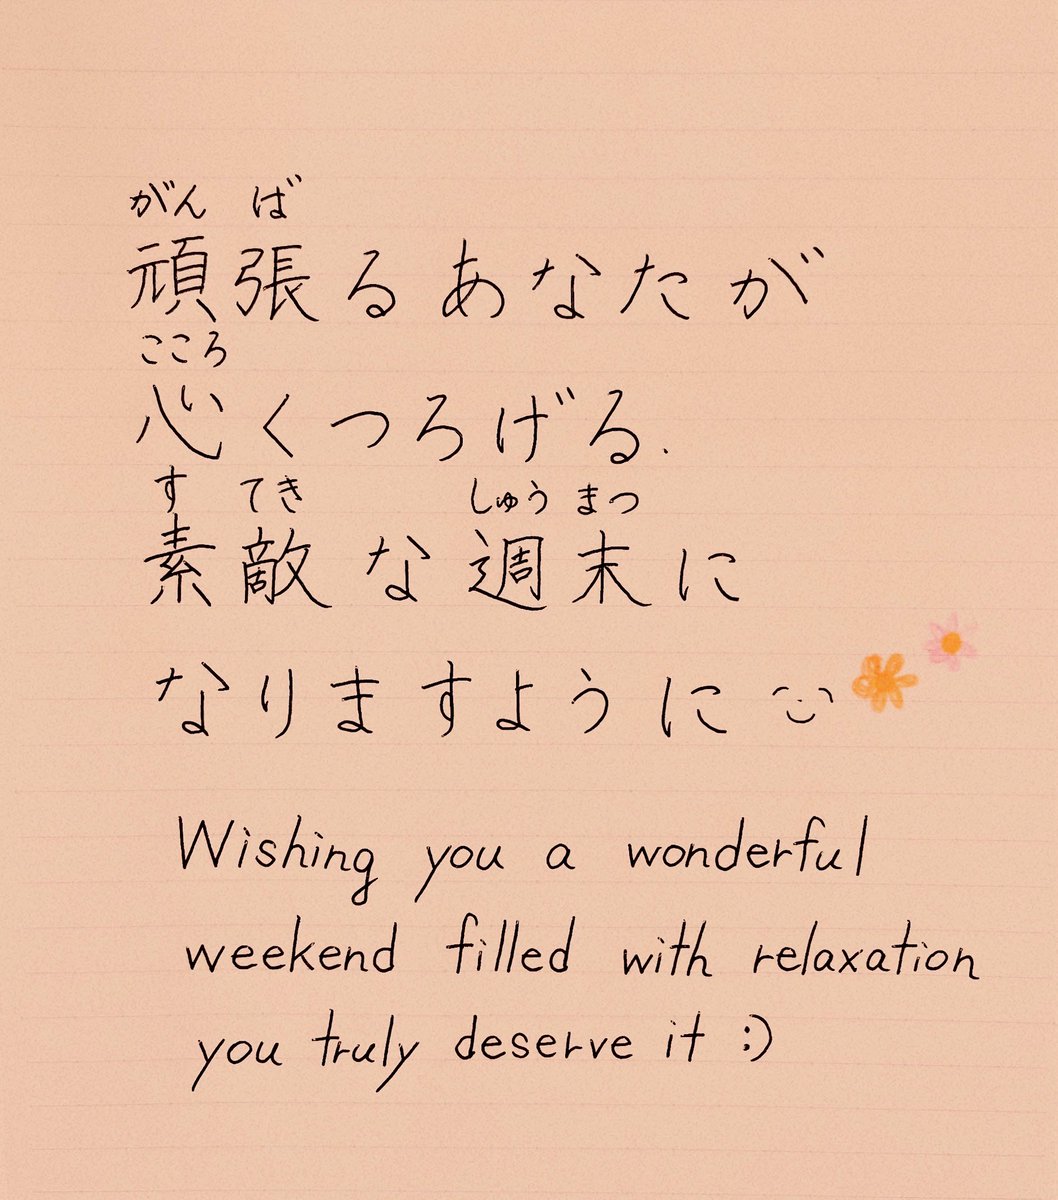 がん ば
頑張るあなたが
こころ
心くつろげる.
す てき しゅう まつ
素敵な週末に
なりますように
Wishing you a wonderful
weekend filled with relaxation
you truly deserve it :)